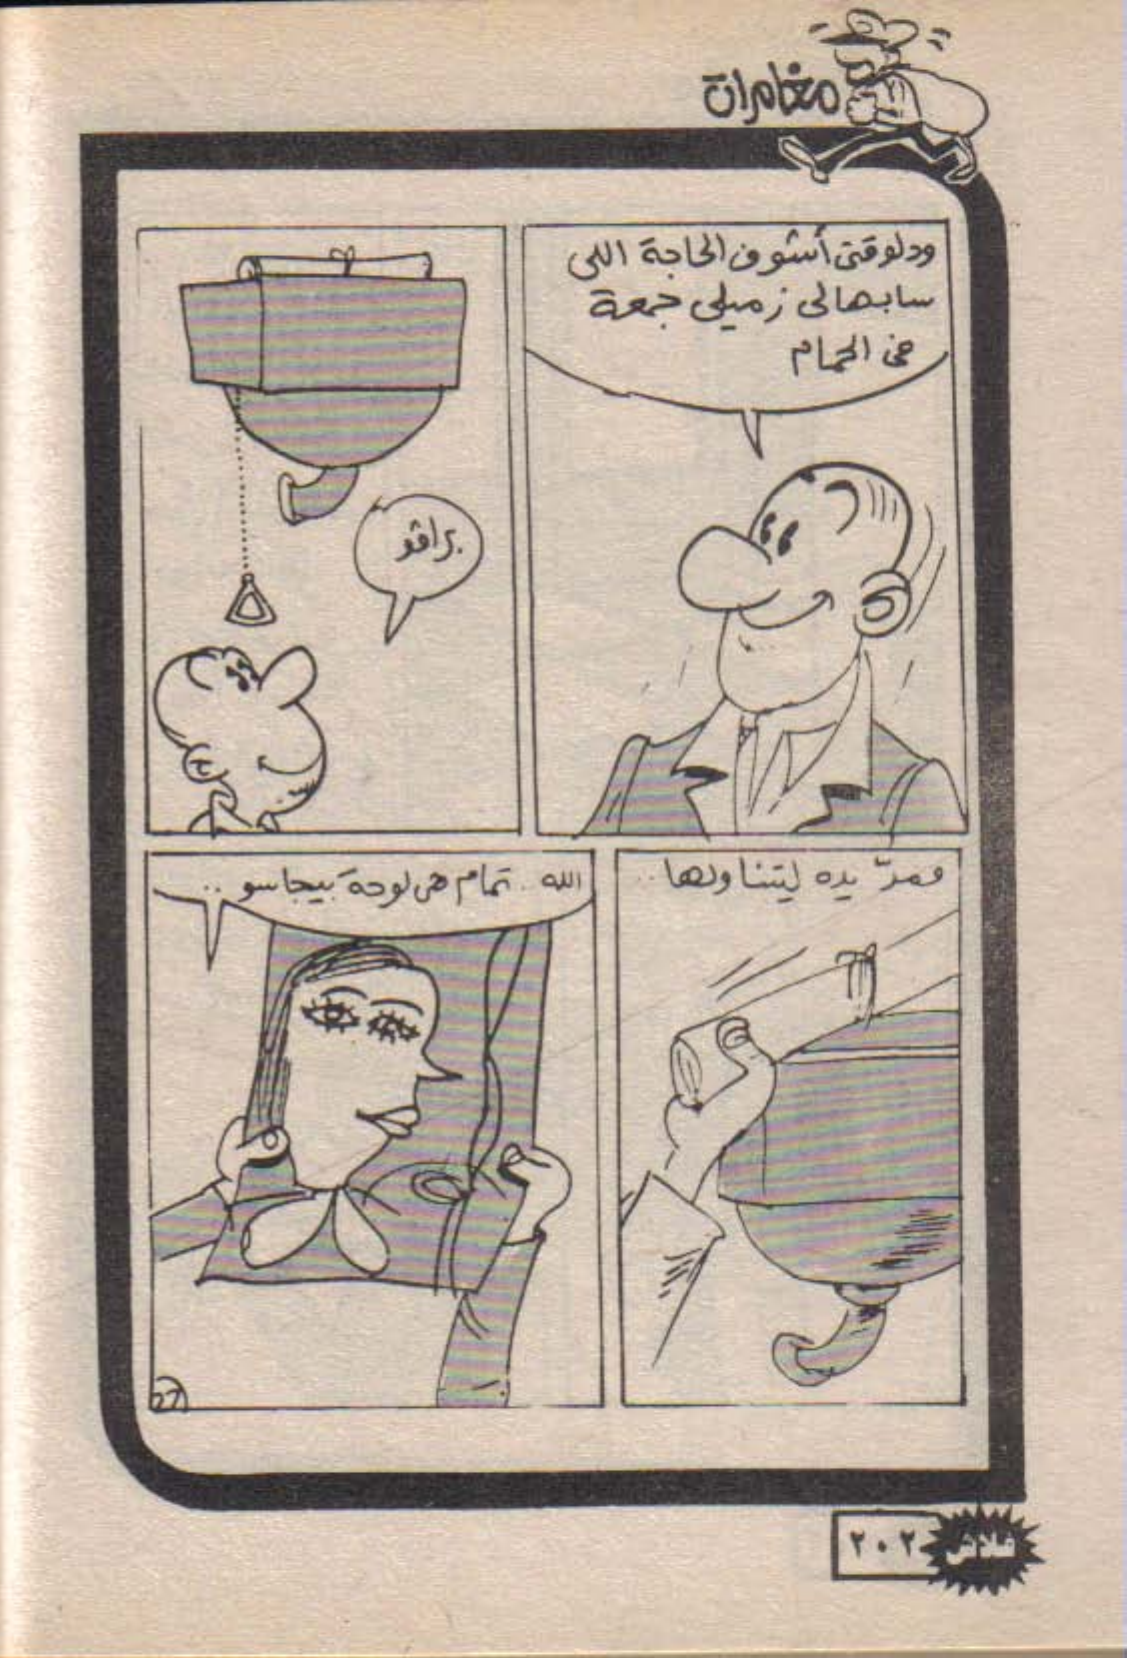 مغامرات
ودلوقتى أشوف الحاجة اللى
سابهالى زميلى جمعة
فى الحمام
براڤو
فمدّ يده ليتناولها..
الله.. تمام هى لوحة بيجاسو..
٢٧
فلاش
٢٠٢